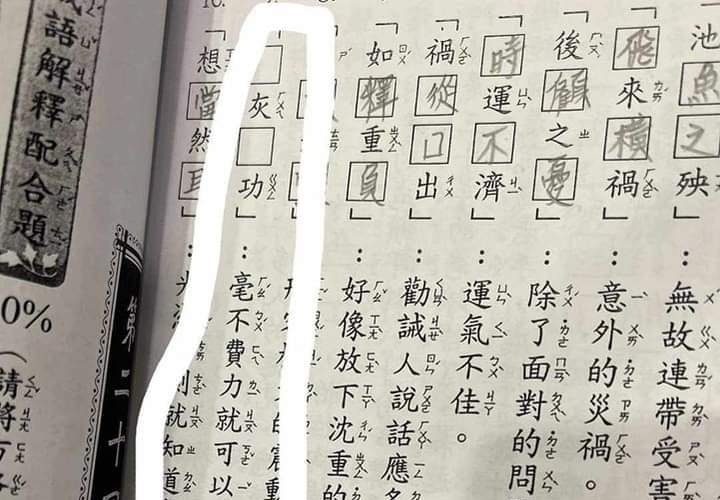 池魚之殃」：無故連帶受害
「飛來橫禍」：意外的災禍。
「後顧之憂」：除了面對的問
「時運不濟」：運氣不佳。
「禍從口出」：勸誡人說話應多
「如釋重負」：好像放下沈重的
的震動
「□灰□功」：毫不費力就可以
「想當然耳」：就知道
10.
第二十
語解釋配合題
0%
（請將